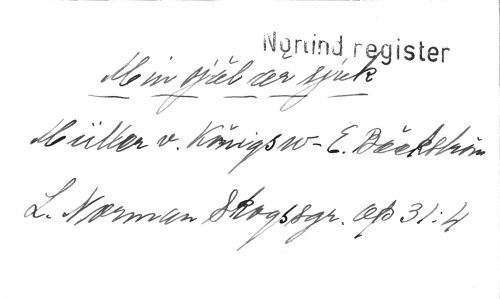 Nyind register
Min själ är sjuk
Müller v. Königsw - E. Bäckström
L. Norman Skogssgr. op 31:4